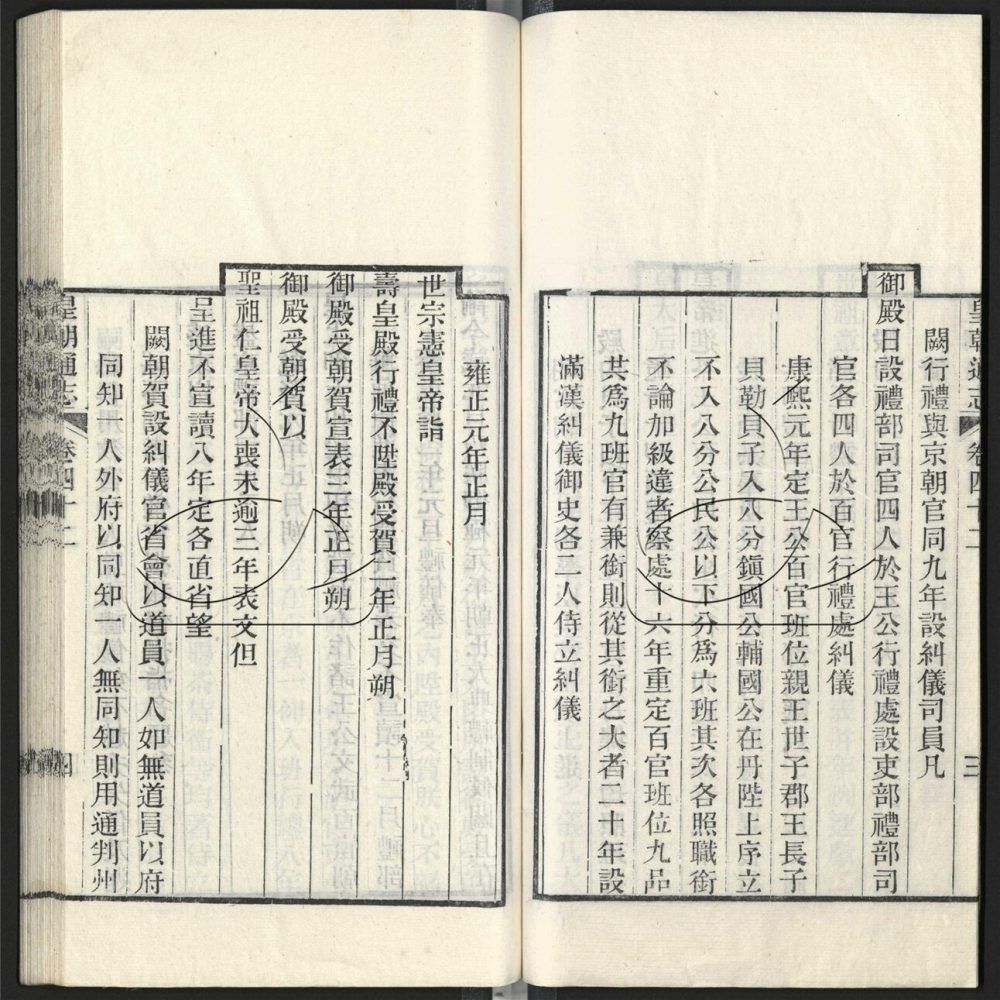 皇朝通志 卷四十二 三
闕行禮與京朝官同九年設糾儀司員凡
御殿日設禮部司官四人於王公行禮處設吏部禮部司
官各四人於百官行禮處糾儀
康熙元年定王公百官班位親王世子郡王長子
貝勒貝子入八分鎮國公輔國公在丹陛上序立
不入八分公民公以下分為六班其次各照職銜
不論加級違者察處十六年重定百官班位九品
共為九班官有兼銜則從其銜之大者二十年設
滿漢糾儀御史各二人侍立糾儀
雍正元年正月
世宗憲皇帝詣
壽皇殿行禮不陞殿受賀二年正月朔
御殿受朝賀宣表三年正月朔
御殿受朝賀以
聖祖仁皇帝大喪未逾三年表文但
呈進不宣讀八年定各直省望
闕朝賀設糾儀官省會以道員一人如無道員以府
同知一人外府以同知一人無同知則用通判州
皇朝通志 卷四十二 四